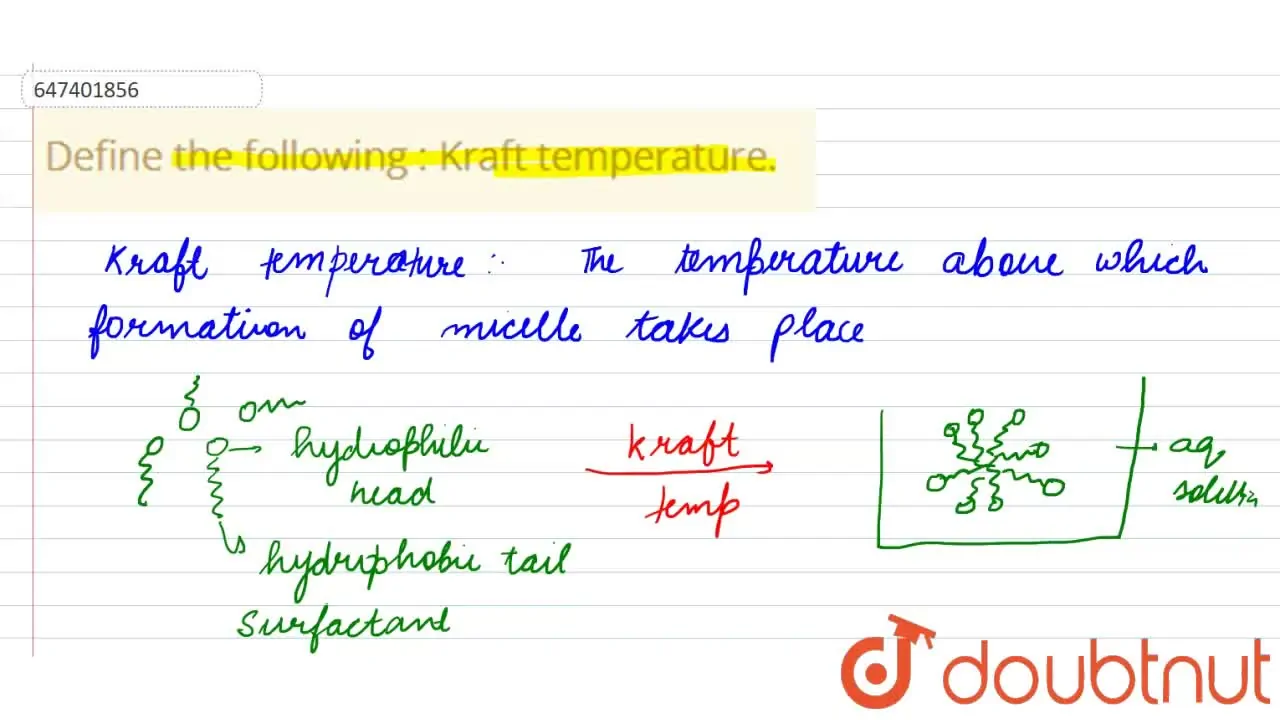 647401856
Define the following : Kraft temperature.
Kraft temperature : The temperature above which
formation of micelle takes place
hydrophilic
head
hydrophobic tail
Surfactant
kraft
temp
aq
doubtnut